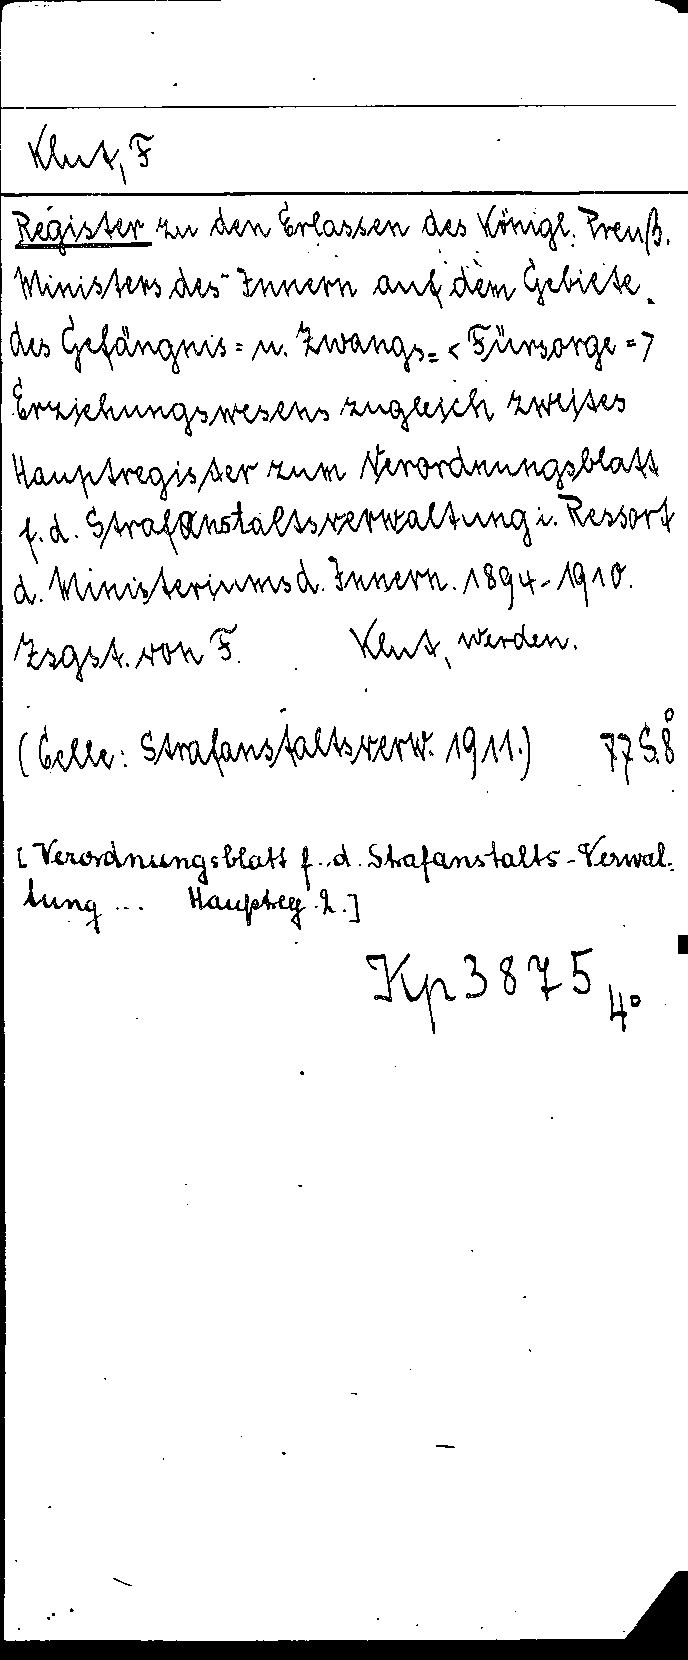 Klut, F
Register zu den Erlassen des Königl. Preuß.
Ministers des Innern auf dem Gebiete
des Gefängnis= u. Zwangs= <Fürsorge=>
Erziehungswesens zugleich zweites
Hauptregister zum Verordnungsblatt
f. d. Strafanstaltsverwaltung i. Ressort
d. Ministeriums d. Innern. 1894-1910.
Zsgst. von F. Klut, Werden.
(Celle: Strafanstaltsverw. 1911.) 77 S. 8°
[Verordnungsblatt f. d. Strafanstalts-Verwal-
tung ... Hauptreg. 2.]
Kp 3875 4°